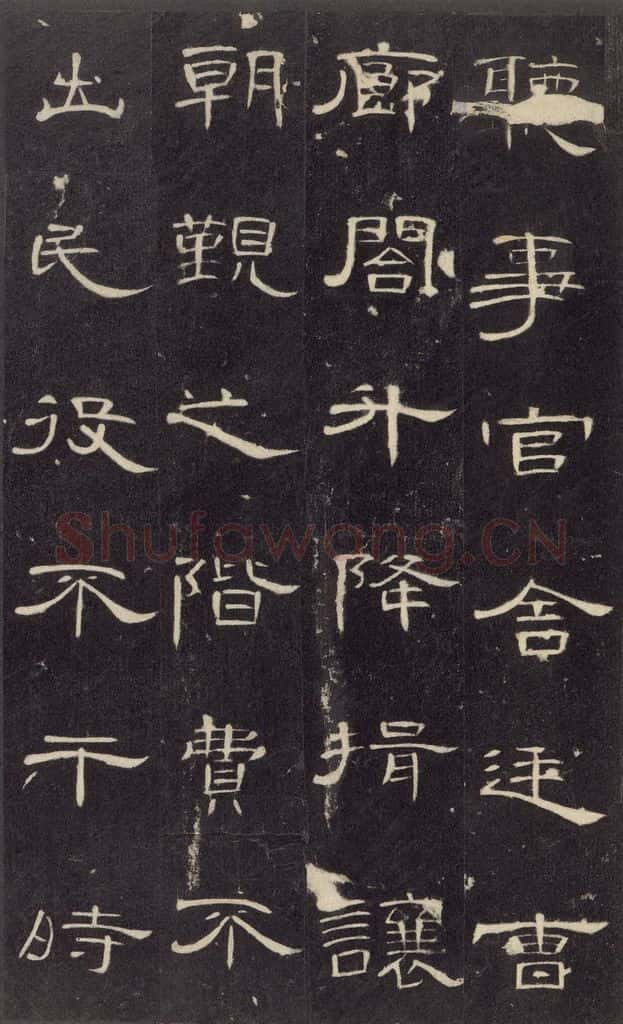 聽事官舍廷曹
廊閤升降揖讓
朝覲之階費不
出民役不干時
Shufawang.CN